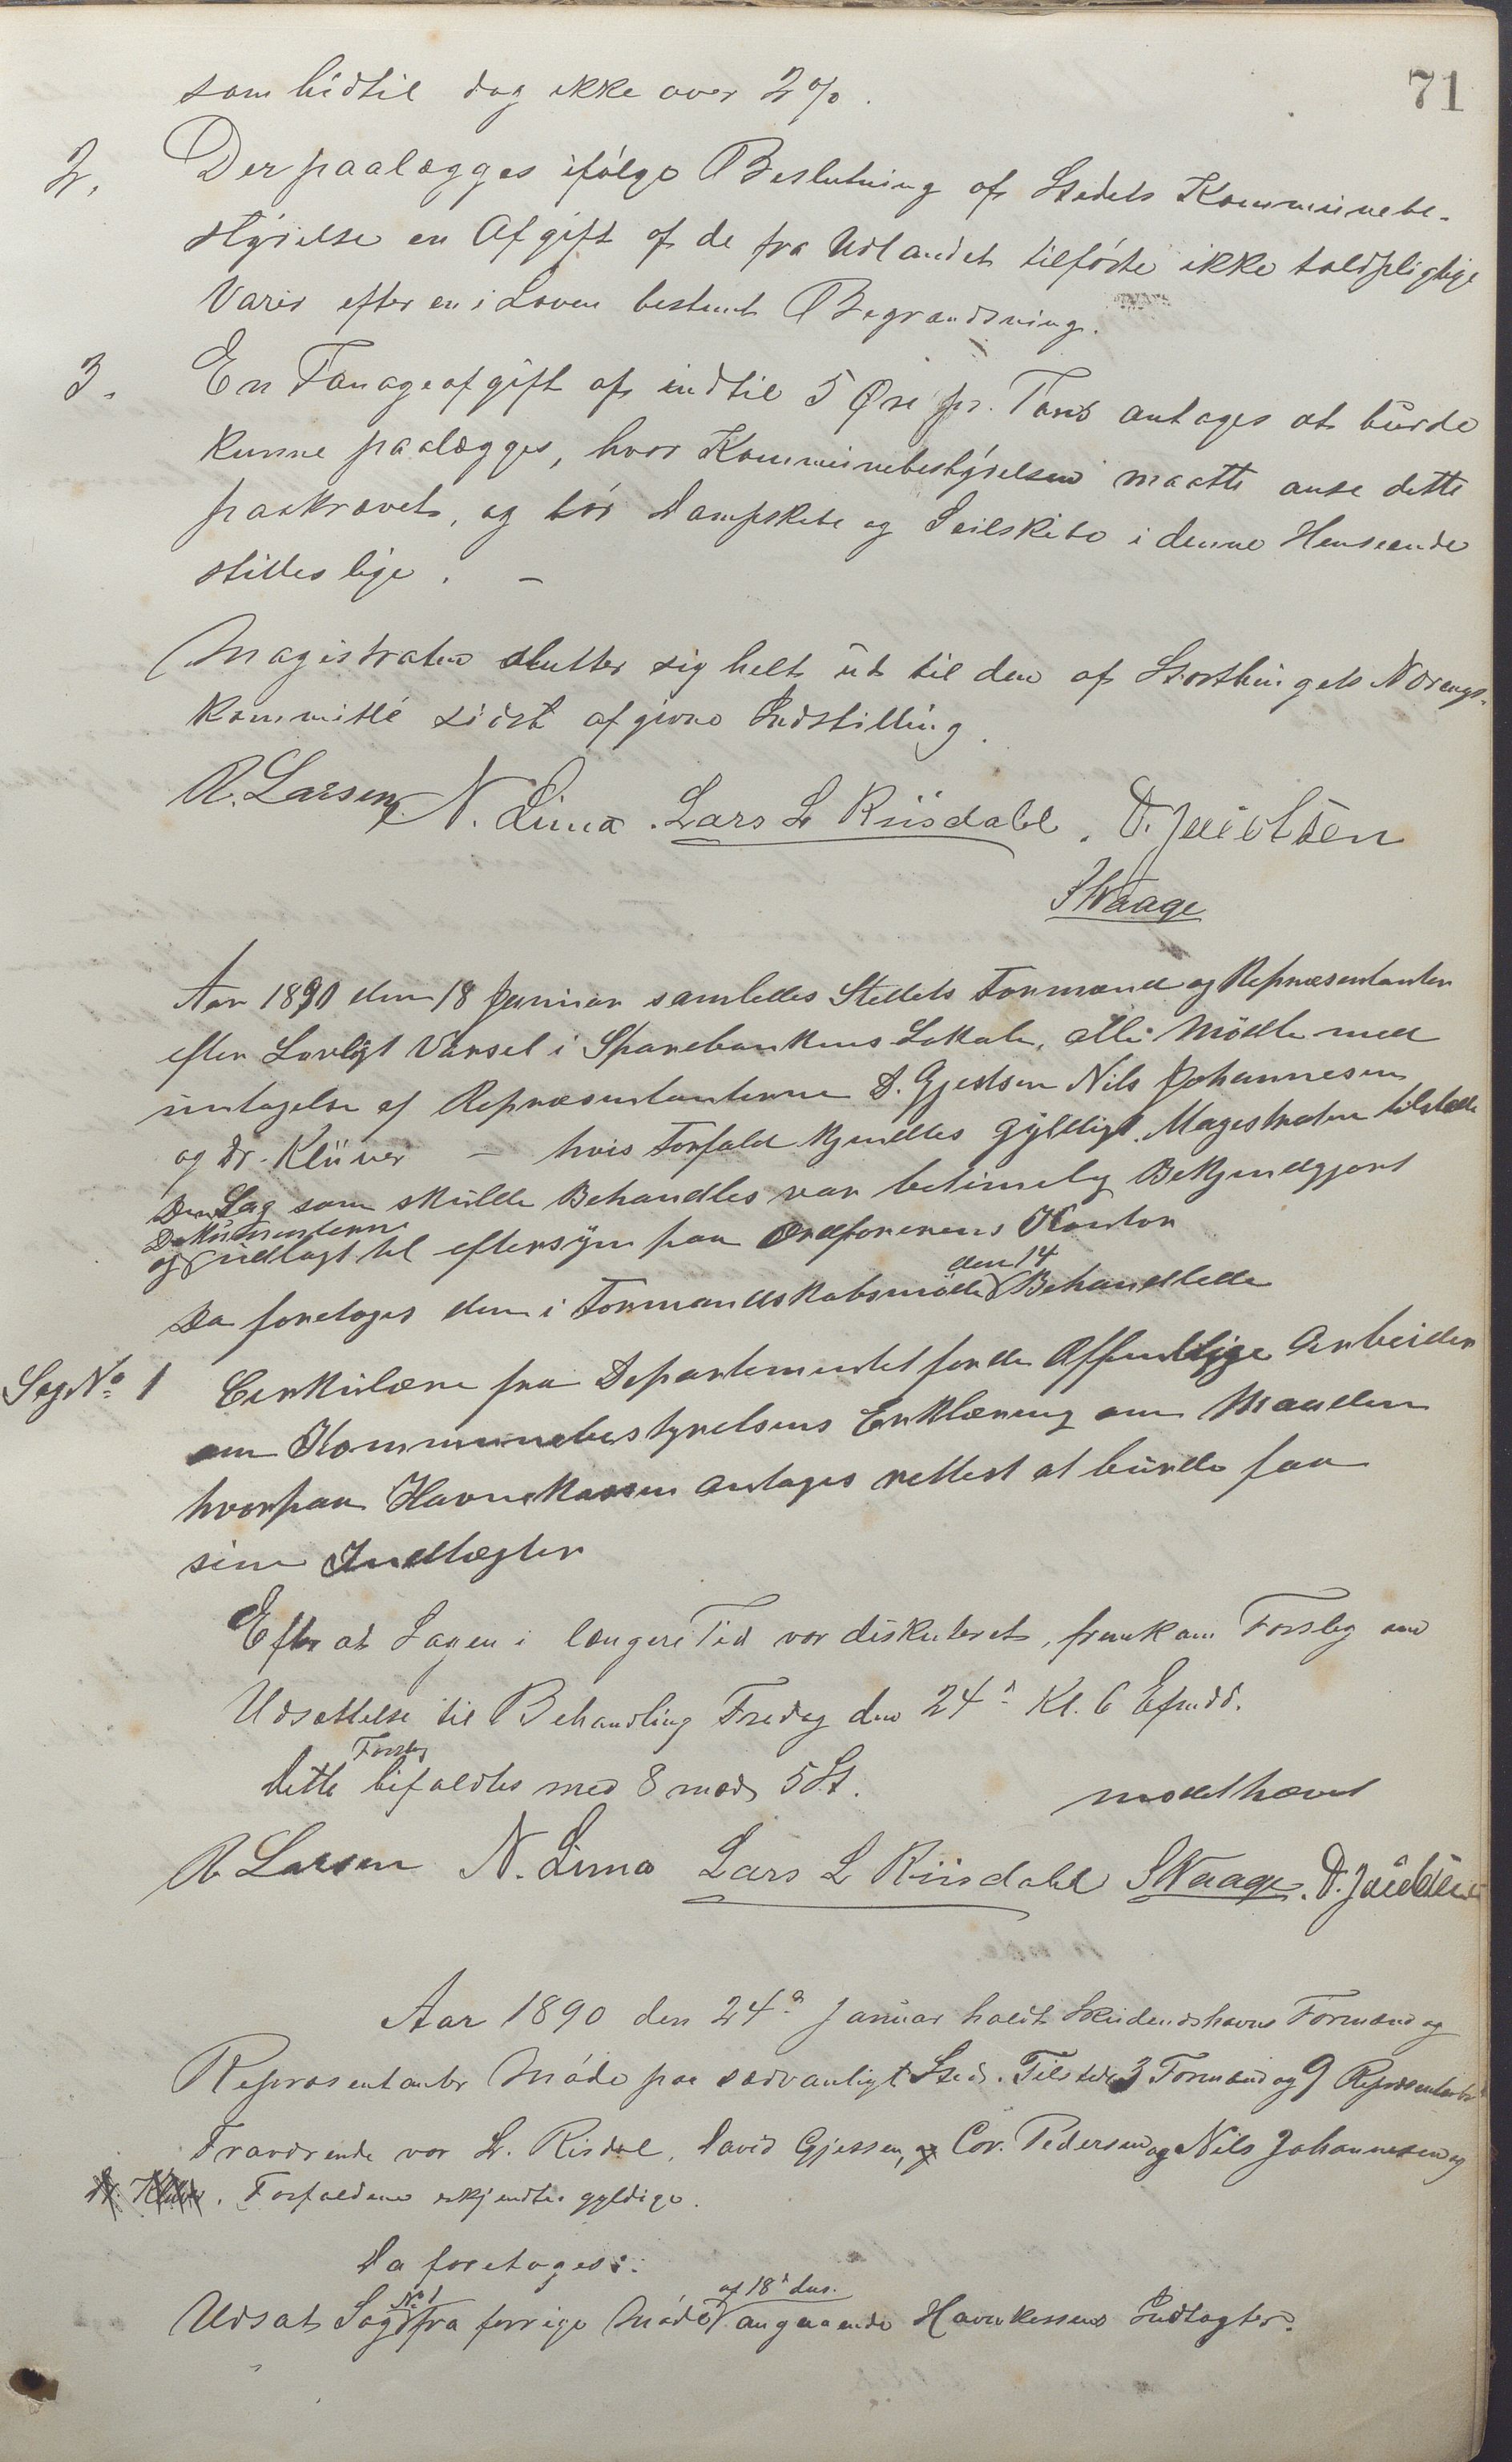 71
som hidtil dog ikke over 2%.
2. Der paalægges ifølge Beslutning af Stedets Kommunebe-
styrelse en Afgift af de fra Udlandet tilførte ikke toldpligtige
Varer efter en i Loven bestemt Begrændsning.
3. En Tonageafgift af indtil 5 Øre pr. Tons antages at burde
kunne paalægges, hvor Kommunebestyrelsen maatte anse dette
paakrævet, og bør Dampskibe og Seilskibe i denne Henseende
stilles lige. —
Magistraten slutter sig helt ut til den af Storthingets Nærings-
kommitté sidst afgivne Indstilling.
R. Larsen. N. Lima. Lars L Riisdahl. D. Jacobsen
S Waage
Aar 1890 den 18 Januar samledes Stedets Formænd og Repræsentanter
efter Lovligt Varsel i Sparebankens Lokale, alle Mødte med
untagelse af Repræsentanterne D. Gjedsen Nils Johannesen
og Dr. Klüwer — hvis Forfald kjendtes Gyldigt. Magistraten tilstede
Den Sag som skulde Behandles var betimelig Bekjendtgjort
Dokumenterne
og udlagt til eftersyn paa Ordførerens Kontor
den 14
Da foretages den i Formandskabsmøde Behandlede
Sag No 1 Cirkulære fra Departementet for de Offentlige Arbeider
om Kommunebestyrelsens Erklæring om Maaden
hvorpaa Havnekassen antages rettest at burde faa
sine Indtægter
Efter at Sagen i længere Tid var diskuteret, fremkom Forslag om
Udsættelse til Behandling Fredag den 24de Kl. 6 Efmdd.
Forslag
Dette bifaldtes med 8 mod 5 St.
mødet hævet
R Larsen N. Lima Lars L Riisdahl S Waage. D. Jacobsen
Aar 1890 den 24de Januar holdt Skudeneshavns Formænd og
Repræsentanter Møde paa sædvanligt Sted. Tilstede 3 Formænd og 9 Repræsentanter
Fraværende var L. Risdal, David Gjessen, og Cor. Pedersen og Nils Johannesen og
Dr. Klüwer. Forfaldene erkjendtes gyldige.
Da foretoges:
No 1 af 18de ds.
Udsat Sag fra forrige Møde angaaende Havnekassens Indtægter.